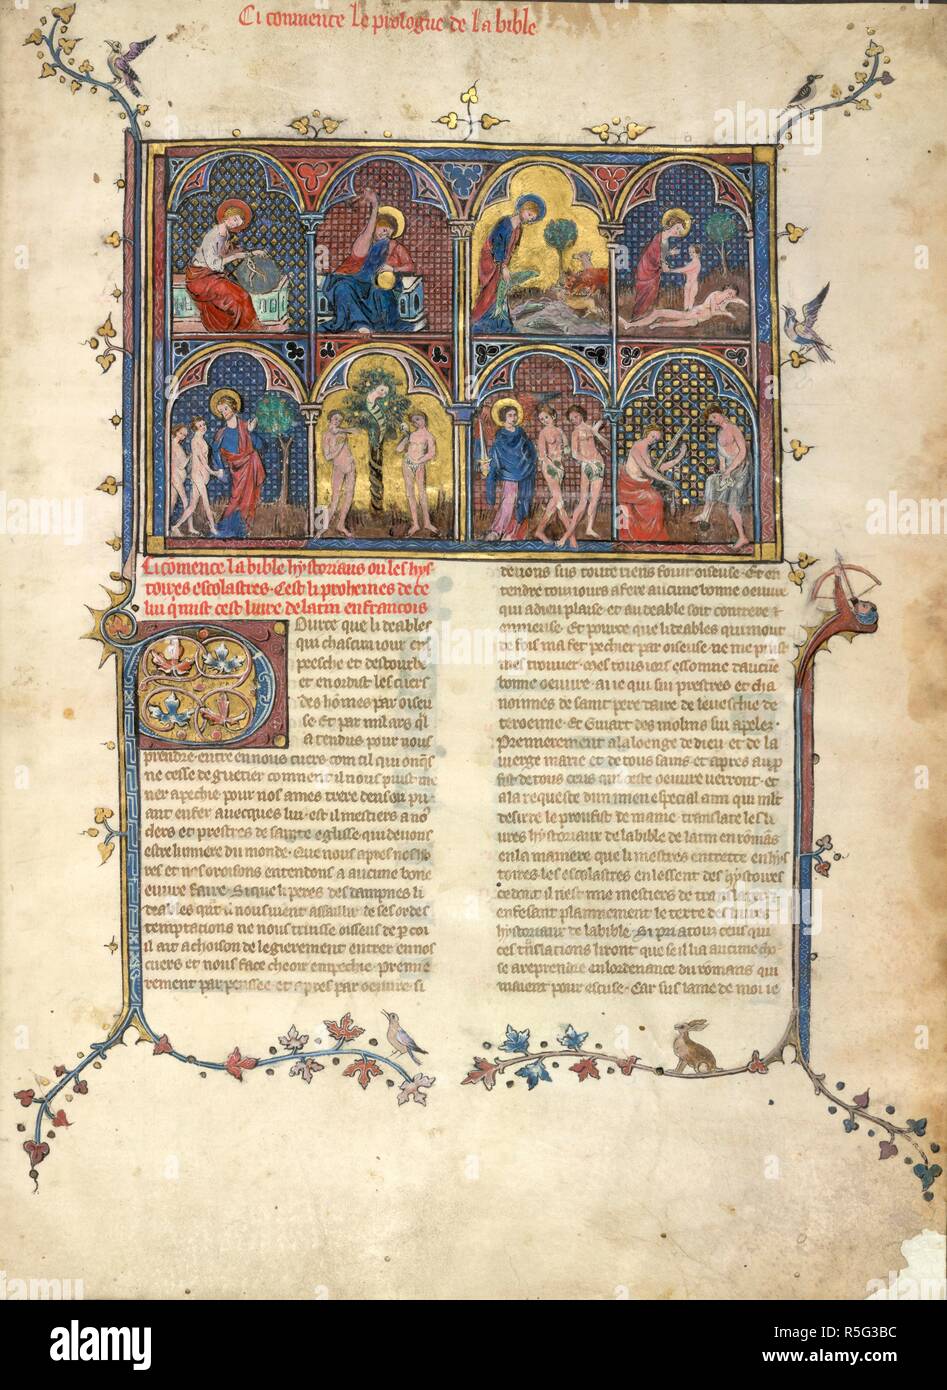 Ci commence le prologue de la bible
Ci comence la bible hystoriaus ou les hys
toires escolastres. Cest li prohemes de ce
lui q̃ mist cest liure de latin en francois
Pource que li deables
qui chascun iour em
pesche et destourbe
et enordist les cuers
des hõmes par oiseu
se et par mil ars q̃l
a tendus pour nous
prendre. entre en nous cuers com cil qui onq̃s
ne cesse de guetier comment il nous puist me
ner a pechie pour nos ames traire
ant enfer auecques lui. est il mestiers a no9
clers et prestres de sainte eglise qui deuons
estre lumiere du monde. Que nous apres nes
res et nos oroisons entendons a aucune bone
euure faire. Si que li peres des dampnes li
deables quãt il nous vient assaillir de ses ordes
temptations ne nous truisse oiseus de p̃ coi
il ait achoison de legierement entrer en nos
cuers et nous face cheoir en pechie. premie
rement par pensee. et apres par oeuure. si
deuons sus toute riens fouir oiseuse. Et en
tendre tous iours a fere aucune bonne oeuure
qui a dieu plaise et au deable soit contrere
ennuieuse. Et pource que li deables qui mout
de fois ma fet pechier par oiseuse. ne me puist
mes trouuer. Mes tous iers essoinne daucũe
bonne oeuure. aie qui sui prestres et cha
noinnes de saint pere daire de leueschie de
teroenne. Et Guiart des molins sui apelez.
Premierement a la loenge de dieu et de la
vierge marie et de tous sains et apres au p̃
fit de tous ceus qui ceste oeuure verront. et
a la requeste dun mien especial ami qui mlt
desire le proufist de mame. translate les li
ures hystoriaus de la bible de latin en romãs
en la maniere que li mestres en trette en hys
toires les escolastres en lessent des hystoires
ce dont il nest mie mestiers de translater
en fesant plainnement le texte des liures
hystoriaus de la bible. Si pri a tous ceus qui
ces trãslations liront que se il i a aucune cho
se a reprendre en lordenance du romans qui
maient pour escuse. Car sus lame de moi ie
alamy
Image ID: R5G3BC
www.alamy.com